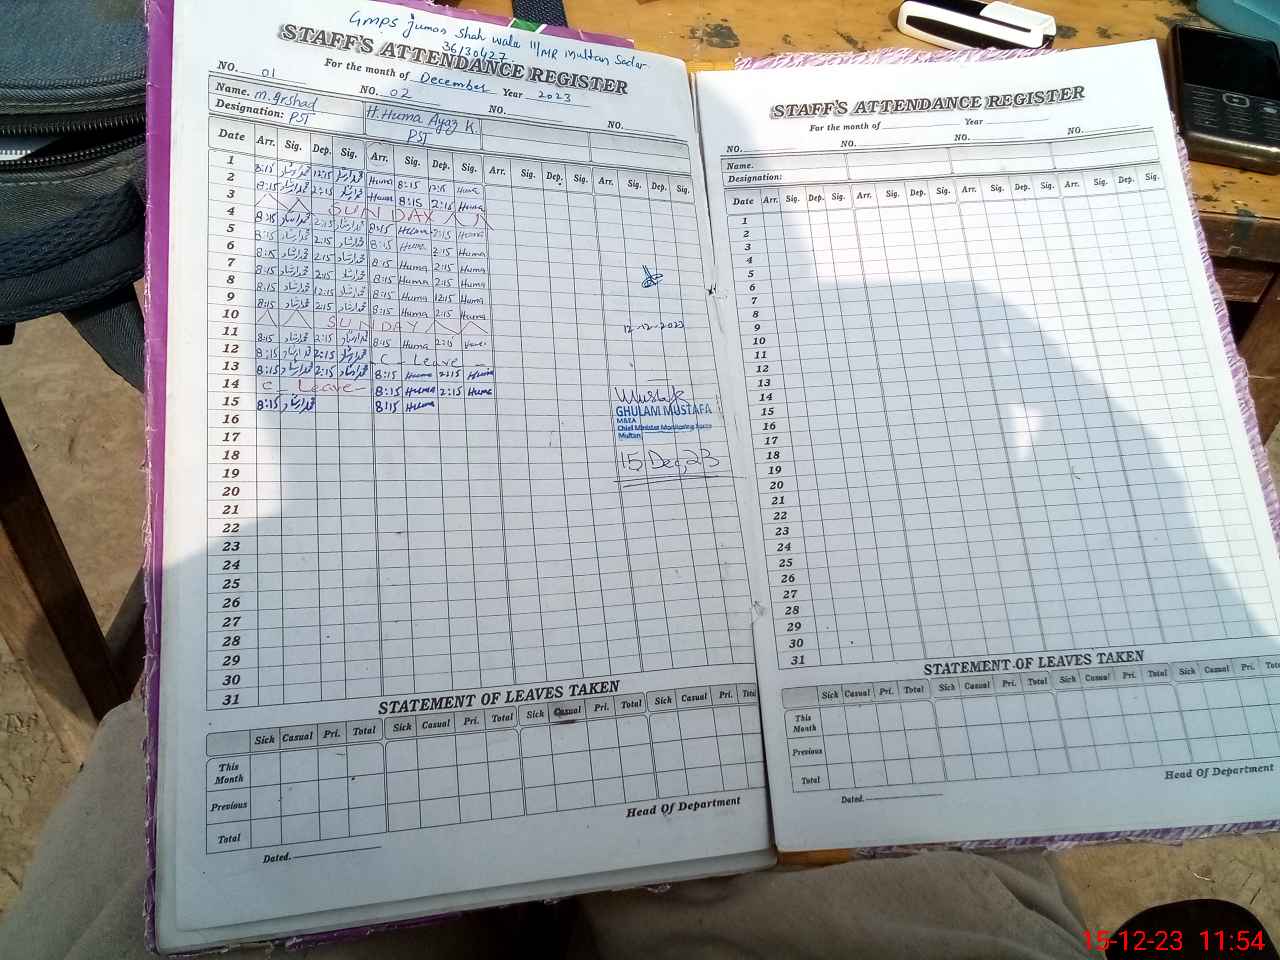 GMPS Jumon Shah wala 111/MR Multan Sadar
36130427
STAFF'S ATTENDANCE REGISTER
For the month of December Year 2023
NO. 01 NO. 02 NO. NO.
Name. M. Irshad H. Huma Ayaz K.
Designation: PST PST
Date Arr. Sig. Dep. Sig. Arr. Sig. Dep. Sig. Arr. Sig. Dep. Sig. Arr. Sig. Dep. Sig.
1 8:15 محمد ارشاد 12:15 محمد ارشاد Huma 8:15 12:15 Huma
2 8:15 محمد ارشاد 2:15 محمد ارشاد Huma 8:15 2:15 Huma
3 SUNDAY
4 8:15 محمد ارشاد 2:15 محمد ارشاد 8:15 Huma 2:15 Huma
5 8:15 محمد ارشاد 2:15 محمد ارشاد 8:15 Huma 2:15 Huma
6 8:15 محمد ارشاد 2:15 محمد ارشاد 8:15 Huma 2:15 Huma
7 8:15 محمد ارشاد 2:15 محمد ارشاد 8:15 Huma 2:15 Huma
8 8:15 محمد ارشاد 12:15 محمد ارشاد 8:15 Huma 12:15 Huma
9 8:15 محمد ارشاد 2:15 محمد ارشاد 8:15 Huma 2:15 Huma
10 SUNDAY
11 8:15 محمد ارشاد 2:15 محمد ارشاد 8:15 Huma 2:15 Huma
12 8:15 محمد ارشاد 2:15 محمد ارشاد C - Leave -
13 8:15 محمد ارشاد 2:15 محمد ارشاد 8:15 Huma 2:15 Huma
14 C - Leave - 8:15 Huma 2:15 Huma
15 8:15 محمد ارشاد 8:15 Huma
16
17
18
19
20
21
22
23
24
25
26
27
28
29
30
31
12-12-2023
Mustafa
GHULAM MUSTAFA
MEA
Chief Minister Monitoring Force
Multan
15 Dec, 23
STATEMENT OF LEAVES TAKEN
Sick Casual Pri. Total Sick Casual Pri. Total Sick Casual Pri. Total Sick Casual Pri. Total
This Month
Previous
Total
Head Of Department
Dated.
STAFF'S ATTENDANCE REGISTER
For the month of Year
NO. NO. NO. NO.
Name.
Designation:
Date Arr. Sig. Dep. Sig. Arr. Sig. Dep. Sig. Arr. Sig. Dep. Sig. Arr. Sig. Dep. Sig.
1
2
3
4
5
6
7
8
9
10
11
12
13
14
15
16
17
18
19
20
21
22
23
24
25
26
27
28
29
30
31
STATEMENT OF LEAVES TAKEN
Sick Casual Pri. Total Sick Casual Pri. Total Sick Casual Pri. Total Sick Casual Pri. Total
This Month
Previous
Total
Head Of Department
Dated.
15-12-23 11:54